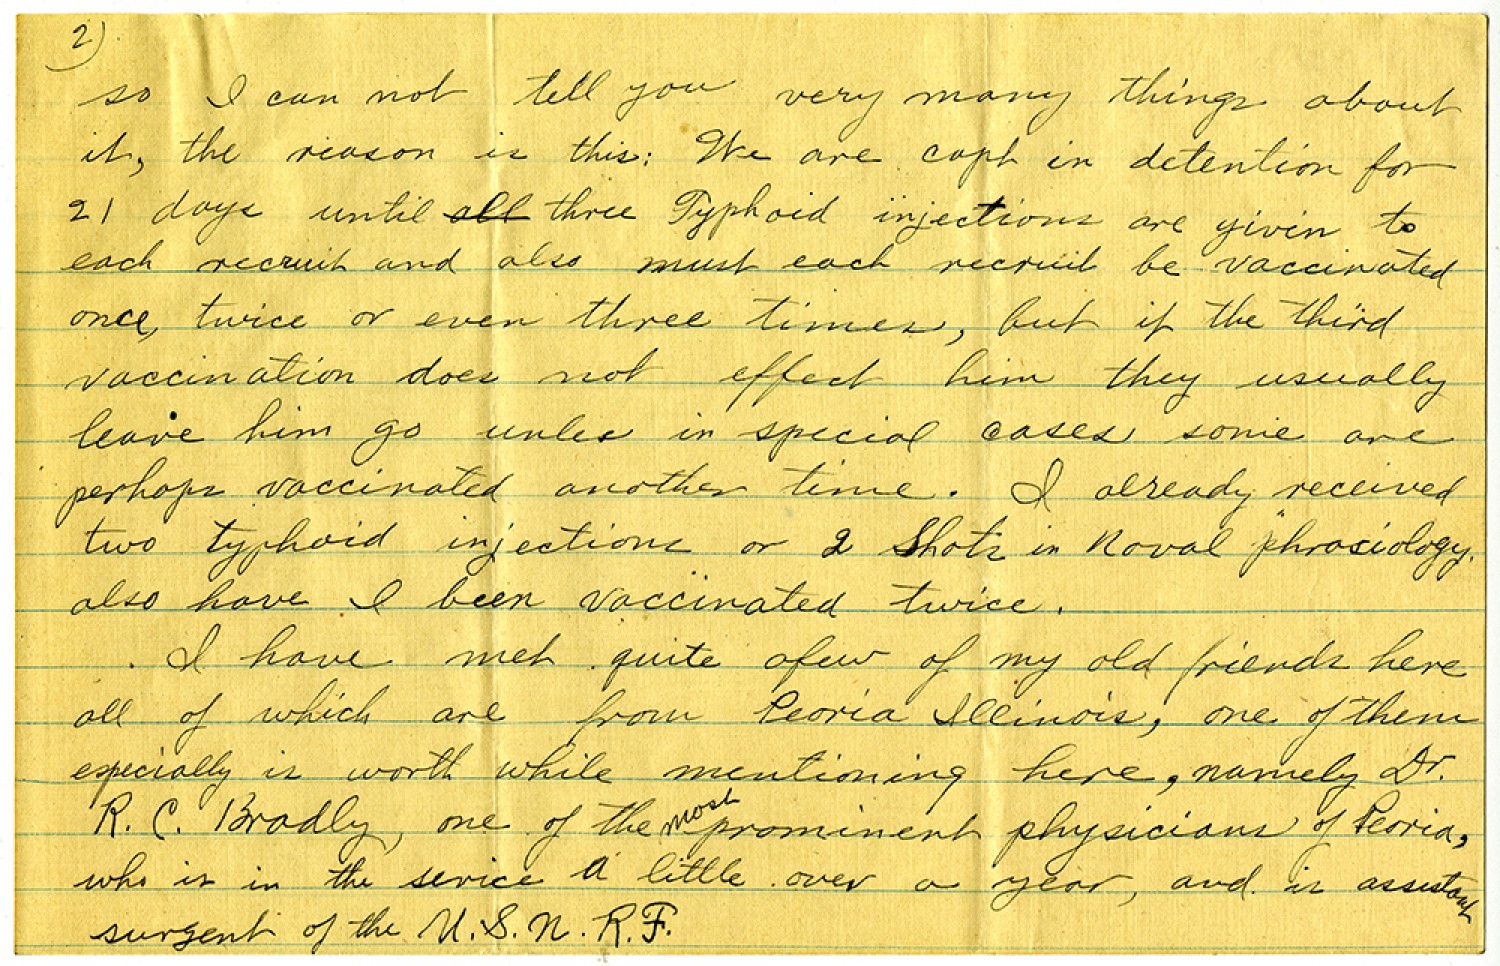 2)
so I can not tell you very many things about
it, the reason is this: We are capt in detention for
21 days until all three Typhoid injections are givin to
each recruit and also must each recruit be vaccinated
once, twice or even three times, but if the third
vaccination does not effect him they usually
leave him go unles in special cases some are
perhaps vaccinated another time. I already received
two typhoid injections or 2 Shots in Naval "phrasiology.
also have I been vaccinated twice.
I have met quite afew of my old friends here
all of which are from Peoria Illinois, one of them
especially is worth while mentioning here, namely Dr.
R. C. Bradly, one of the most prominent physicians of Peoria,
who is in the service a little over a year, and is assistant
surgent of the U.S.N.R.F.